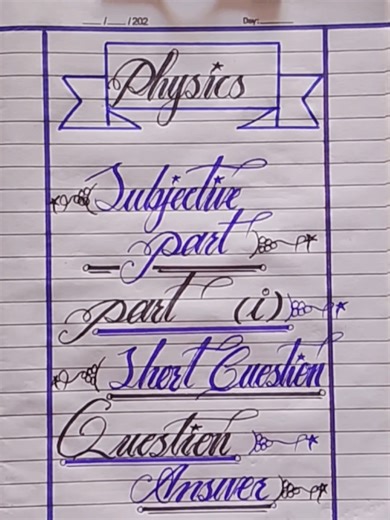 __/__/202 Day:
Physics
Subjective
part
part (i)
Short Question
Question
Answer